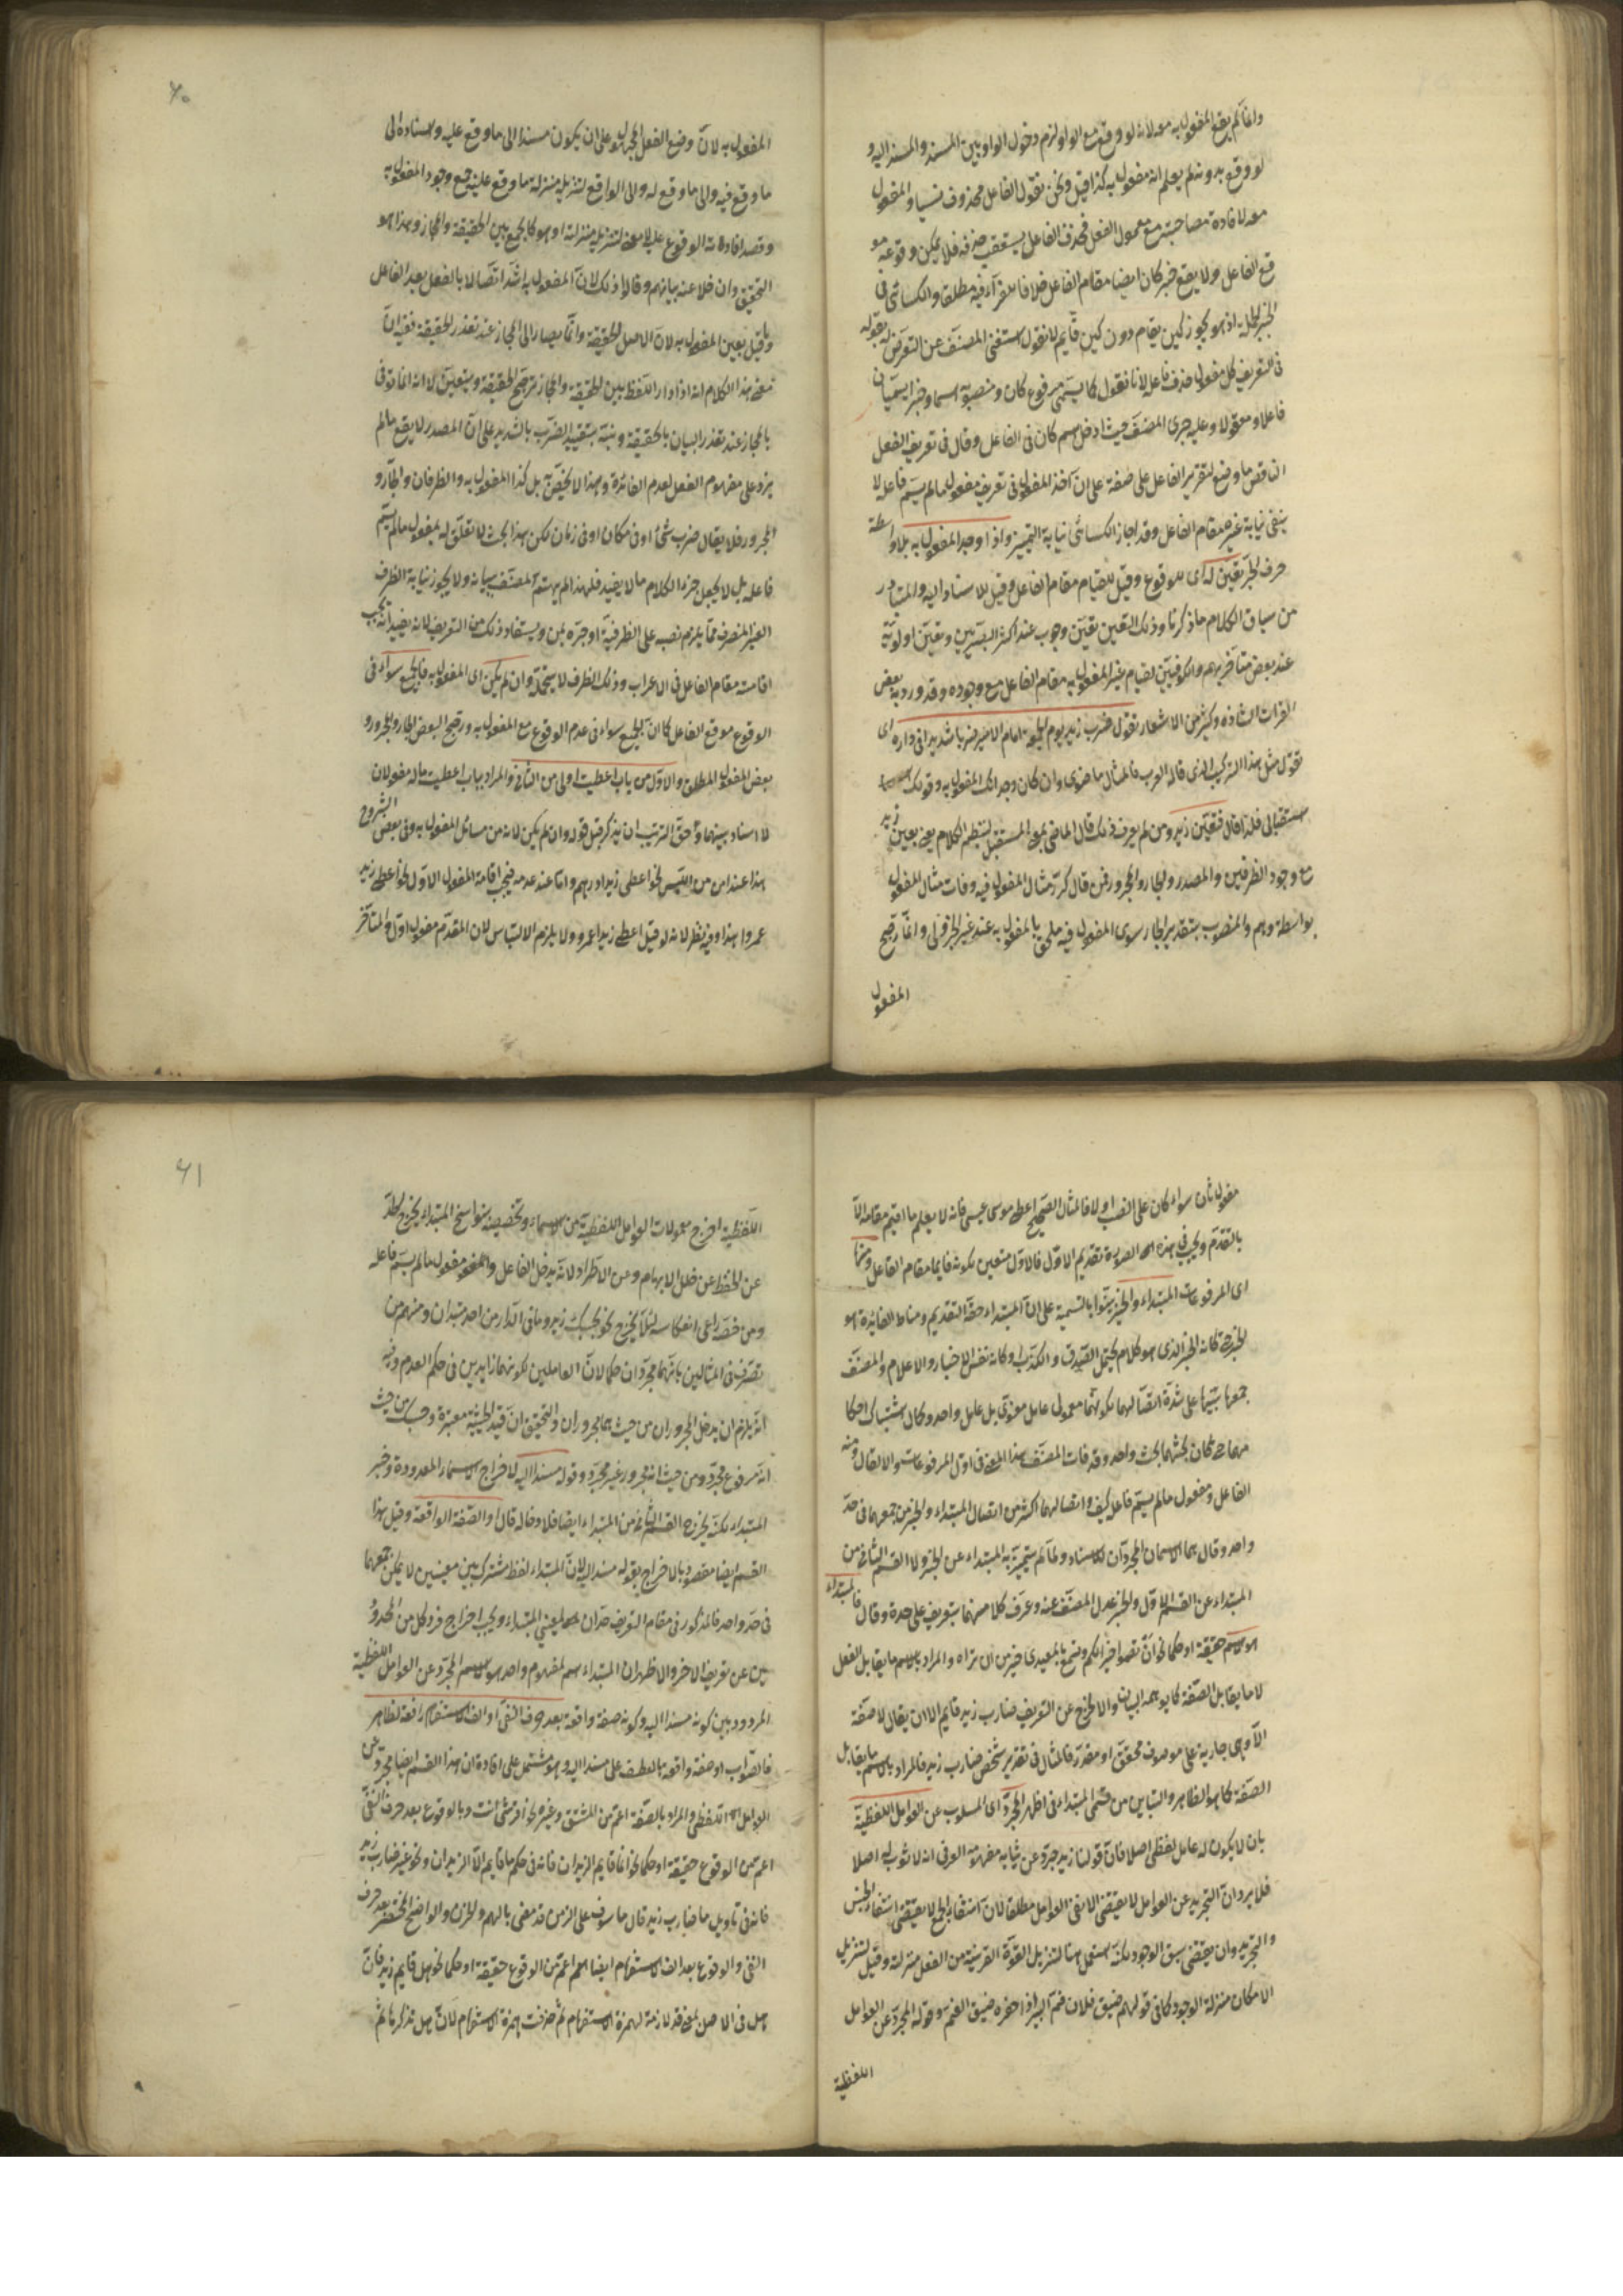 وانما لم يقع المفعول معه لانه لو وقع مع الواو لزم دخول الواو بين المسند والمسند اليه و
لو وقع بدونه لم يعلم انه مفعول معه كذا قيل ونحن نقول الفاعل محذوف نسيا والمفعول
معه لافادة مصاحبته مع معمول الفعل فحذف الفاعل يستعقب حذفه فلا يمكن وقوعه مو
قع الفاعل ولا يقع خبر كان ايضا مقام الفاعل خلافا للفراء فيه مطلقا والكسائى فى
الخبر الجملة اذ هو يجوز كين يقام دون كين قايم لا نقول استغنى المصنف عن التعرض له بقوله
فى التعريف كل مفعول حذف فاعله لانا نقول كما يسمى مرفوع كان ومنصوبه اسما وخبرا يسميان
فاعلا ومفعولا وعليه جرى المصنف حيث ادخل اسم كان فى الفاعل وقال فى تعريف الفعل
الناقص ما وضع لتقرير الفاعل على صفة على ان اخذ المفعول فى تعريف مفعول ما لم يسم فاعله لا
ينفى نيابة غيره مقام الفاعل وقد اجاز الكسائى نيابة التمييز واذا وجد المفعول به بلا واسطة
حرف الجر تعين له اى للوقوع وقيل للقيام مقام الفاعل وقيل للاسناد اليه والمتبادر
من سياق الكلام ما ذكرنا وذلك التعين تعين وجوب عند اكثر البصريين وتعين اولوية
عند بعض متأخريهم والكوفيين لقيام غير المفعول به مقام الفاعل مع وجوده وقد ورد به بعض
القراءت الشاذة وكثير من الاشعار تقول ضرب زيد يوم الجمعة امام الامير ضربا شديدا فى داره اى
تقول مثل هذا التركيب الذى قاله العرب فالمثال ماضوى وان كان وجدانك المفعول به وقولك
استقبالى فلذا قال فتعين زيد ومن لم يعرف ذلك قال الماضى بمعنى المستقبل لينتظم الكلام يعنى يعين زيد
مع وجود الظرفين والمصدر والجار والمجرور فمن قال كرر مثال المفعول فيه وفات مثال المفعول
بواسطة وهم والمنصوب بتقدير الجار سوى المفعول فيه ملحق بالمفعول به عند غير الجزولى وانما رجح
المفعول
٧٠
المفعول به لان وضع الفعل المجهول على ان يكون مسندا الى ما وقع عليه واسناده الى
ما وقع فيه والى ما وقع له والى الواقع لتنزيله منزلة ما وقع عليه فمع وجود المفعول به
وقصد افادة الوقوع عليه لا معنى لتنزيله منزلته او هو كالجمع بين الحقيقة والمجاز وهذا هو
التحقيق وان خلا عنه بيانهم وقالوا ذلك لان المفعول به اشد اتصالا بالفعل بعد الفاعل
وقيل تعين المفعول به لان الاصل الحقيقة وانما يصار الى المجاز عند تعذر الحقيقة ففيه ان
معنى هذا الكلام انه اذا دار اللفظ بين الحقيقة والمجاز ترجح الحقيقة ويتعين لا انه انما توفى
بالمجاز عند تعذر البيان بالحقيقة ونبه بتقييد الضرب بالشديد على ان المصدر لا يقع ما لم
يزد على مفهوم الفعل لعدم الفائدة وهذا لا يخص به بل كذا المفعول به والظرفان والجار و
المجرور فلا يقال ضرب شئ او فى مكان او فى زمان لكن هذا بحث لا تعلق له بمفعول ما لم يسم
فاعله بل لا يجعل جزء الكلام ما لا يفيد فلهذا لم يهتم المصنف ببيانه ولا يجوز نيابة الظرف
الغير المنصرف مما يلزم نصبه على الظرفية او جره بمن ويستفاد ذلك من التعريف لانه يفيد انه يجب
اقامته مقام الفاعل فى الاعراب وذلك الظرف لا يتحمله وان لم يكن اى المفعول به فالجميع سواء فى
الوقوع موقع الفاعل كما ان الجميع سواء فى عدم الوقوع مع المفعول به ورجح البعض الجار والمجرور و
بعض المفعول المطلق والاول من باب اعطيت اولى من الثانى والمراد بباب اعطيت ما له مفعولان
لا اسناد بينهما وحق الترتيب ان يذكر قبل قوله وان لم يكن لانه من مسائل المفعول به وفى بعض الشروح
هذا عند امن من اللبس نحو اعطى زيدا درهم واما عند عدمه فيجب اقامة المفعول الاول نحو اعطى زيد
عمروا هذا وفيه نظر لانه لو قيل اعطى زيدا عمرو ولا يلزم الالتباس لان المقدم مفعول اول والمتأخر
مفعول ثان سواء كان على النصب او لا فالمثال الصحيح اعطى موسى عيسى فانه لا يعلم ما اقيم مقامه الا
بالتقدم ويجب فى هذه الصورة تقديم الاول فالاول متعين بكونه قايما مقام الفاعل ومنها
اى المرفوعات المبتداء والخبر بينوا بالتسمية على ان المبتداء حقه التقديم ومناط الفائدة هو
الخبر حتى كانه الخبر الذى هو كلام يحتمل الصدق والكذب او كانه نفس الاخبار والاعلام والمصنف
جمعهما تنبيها على شدة اتصالهما لكونهما معمولى عامل معنوى بل عامل واحد وكان اشتباك احكا
مهما حتى كان بحثهما بحث واحد وقد فات المصنف هذا المعنى فى اول المرفوعات والا لقال ومنه
الفاعل ومفعول ما لم يسم فاعله كيف واتصالهما اكثر من اتصال المبتداء والخبر من جمعهما فى حد
واحد وقال هما الاسمان المجردان للاسناد ولما لم يتميز به المبتداء عن الخبر ولا القسم الثانى من
المبتداء عن القسم الاول والخبر عدل المصنف عنه وعرف كلا منهما بتعريف على حدة وقال فالمبتداء
هو الاسم حقيقة او حكما نحو ان تصوموا خير لكم وتسمع بالمعيدى خير من ان تراه والمراد بالاسم ما يقابل الفعل
لا ما يقابل الصفة كما يوهمه البيان والا لخرج عن التعريف ضارب زيد قايم الا ان يقال لا صفة
الا وهى جارية على موصوف محقق او مقدر فالمثال فى تقدير شخص ضارب زيد فالمراد بالاسم ما يقابل
الصفة كما هو الظاهر والتباين من قسمى المبتداء فى اظهر المجرد اى المسلوب عن العوامل اللفظية
بان لا يكون له عامل لفظى اصلا فان قولنا زيد مجرد عن ثيابه مفهومه العرفى انه لا ثوب له اصلا
فلا يرد ان التجريد عن العوامل لا يقتضى الا نفى العوامل مطلقا لان انتفاء الجمع لا يقتضى انتفاء الجنس
والتجريد وان يقتضى سبق الوجود لكنه استعمل هنا لتنزيل القوة القريبة من الفعل منزلته وقيل لتنزيل
الامكان منزلة الوجود كما فى قولهم ضيق فلان فم البير اذا حفره ضيق الفم وقوله المجرد عن العوامل
اللفظية
٧١
اللفظية اخرج معمولات العوامل اللفظية من الاسماء وتخصيصه بنواسخ المبتداء يخرج الحد
عن الحفظ عن خلل الابهام وعن الاطراد لانه يدخل الفاعل والمفعول مفعول ما لم يسم فاعله
ومن خصه راعى انعكاسه لئلا يخرج نحو بحسبك زيد وما فى الدار من احد مبتدان ومنهم من
تصرف فى المثالين بانهما مجردان حكما لان العاملين لكونهما زايدين فى حكم العدم وفيه
انه يلزم ان يدخل المجروران من حيث هما مجروران والتحقيق ان قيد الحيثية معتبرة وحسبك من حيث
انه مرفوع مجرد ومن حيث انه مجرور غير مجرد وقوله مسندا اليه لاخراج الاسماء المعدودة وخبر
المبتداء لكنه يخرج القسم الثانى من المبتداء ايضا فلادخاله قال او الصفة الواقعة وقيل هذا
القسم ايضا مقصود بالاخراج بقوله مسند اليه لان المبتداء لفظ مشترك بين معنيين لا يمكن جمعهما
فى حد واحد فالمذكور فى مقام التعريف حدان لمعنيى المبتداء ويجب اخراج فرد كل من المحدو
دين عن تعريف الاخر والاظهر ان المبتداء اسم لمفهوم واحد هو الاسم المجرد عن العوامل اللفظية
المردود بين كونه مسندا اليه وكونه صفة واقعة بعد حرف النفى او الف الاستفهام رافعة لظاهر
فالصواب او صفة واقعة بالعطف على مسند اليه وهو مشتمل على افادة ان هذا القسم ايضا مجرد عن
العوامل اللفظى والمراد بالصفة اعم من المشتق وغيره نحو اقرشى انت وبالوقوع بعد حرف النفى
اعم من الوقوع حقيقة او حكما نحو انما قايم الزيدان فانه فى حكم ما قايم الا الزيدان ونحو غير ضارب زيد
فانه فى تاويل ما ضارب زيد قال ماسوف على الزمن قد مضى بالهم والحزن والواضح المختصر بعد حرف
النفى والوقوع بعد الف الاستفهام ايضا اعم من الوقوع حقيقة او حكما نحو هل قايم زيد فان
هل فى الاصل بمعنى قد لازمة لهمزة الاستفهام ثم حذفت همزة الاستفهام لان هل تذكرها ثم